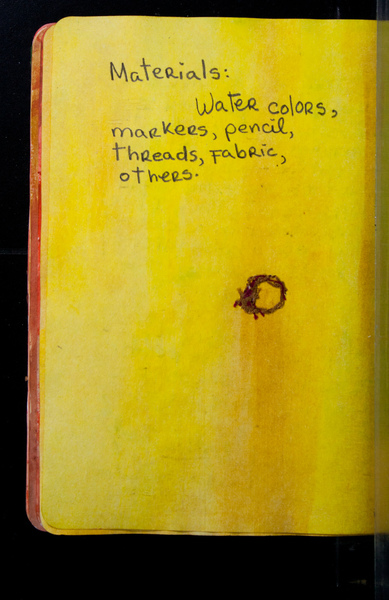 Materials:
Water colors,
markers, pencil,
threads, Fabric,
others.